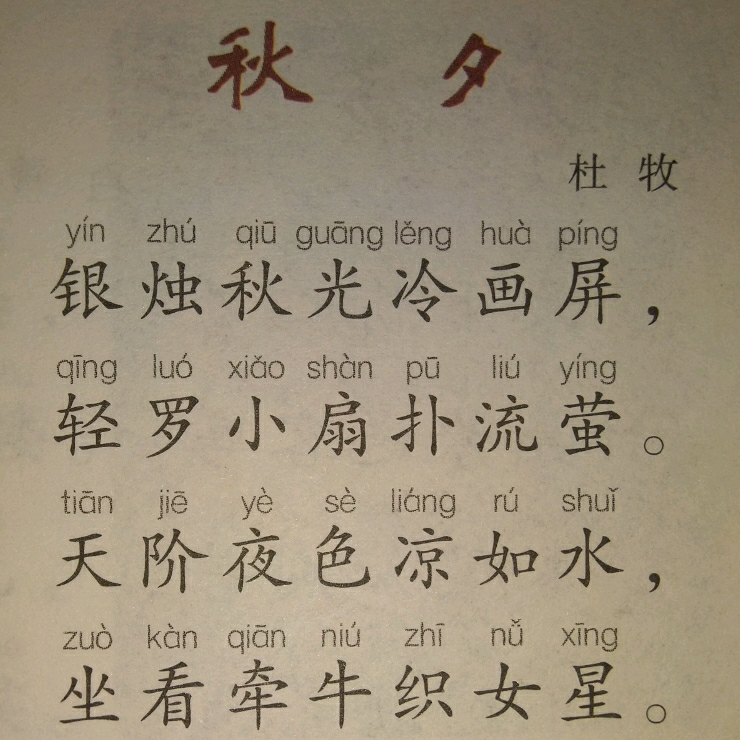 秋 夕
杜 牧
yín zhú qiū guāng lěng huà píng
银烛秋光冷画屏，
qīng luó xiǎo shàn pū liú yíng
轻罗小扇扑流萤。
tiān jiē yè sè liáng rú shuǐ
天阶夜色凉如水，
zuò kàn qiān niú zhī nǚ xīng
坐看牵牛织女星。